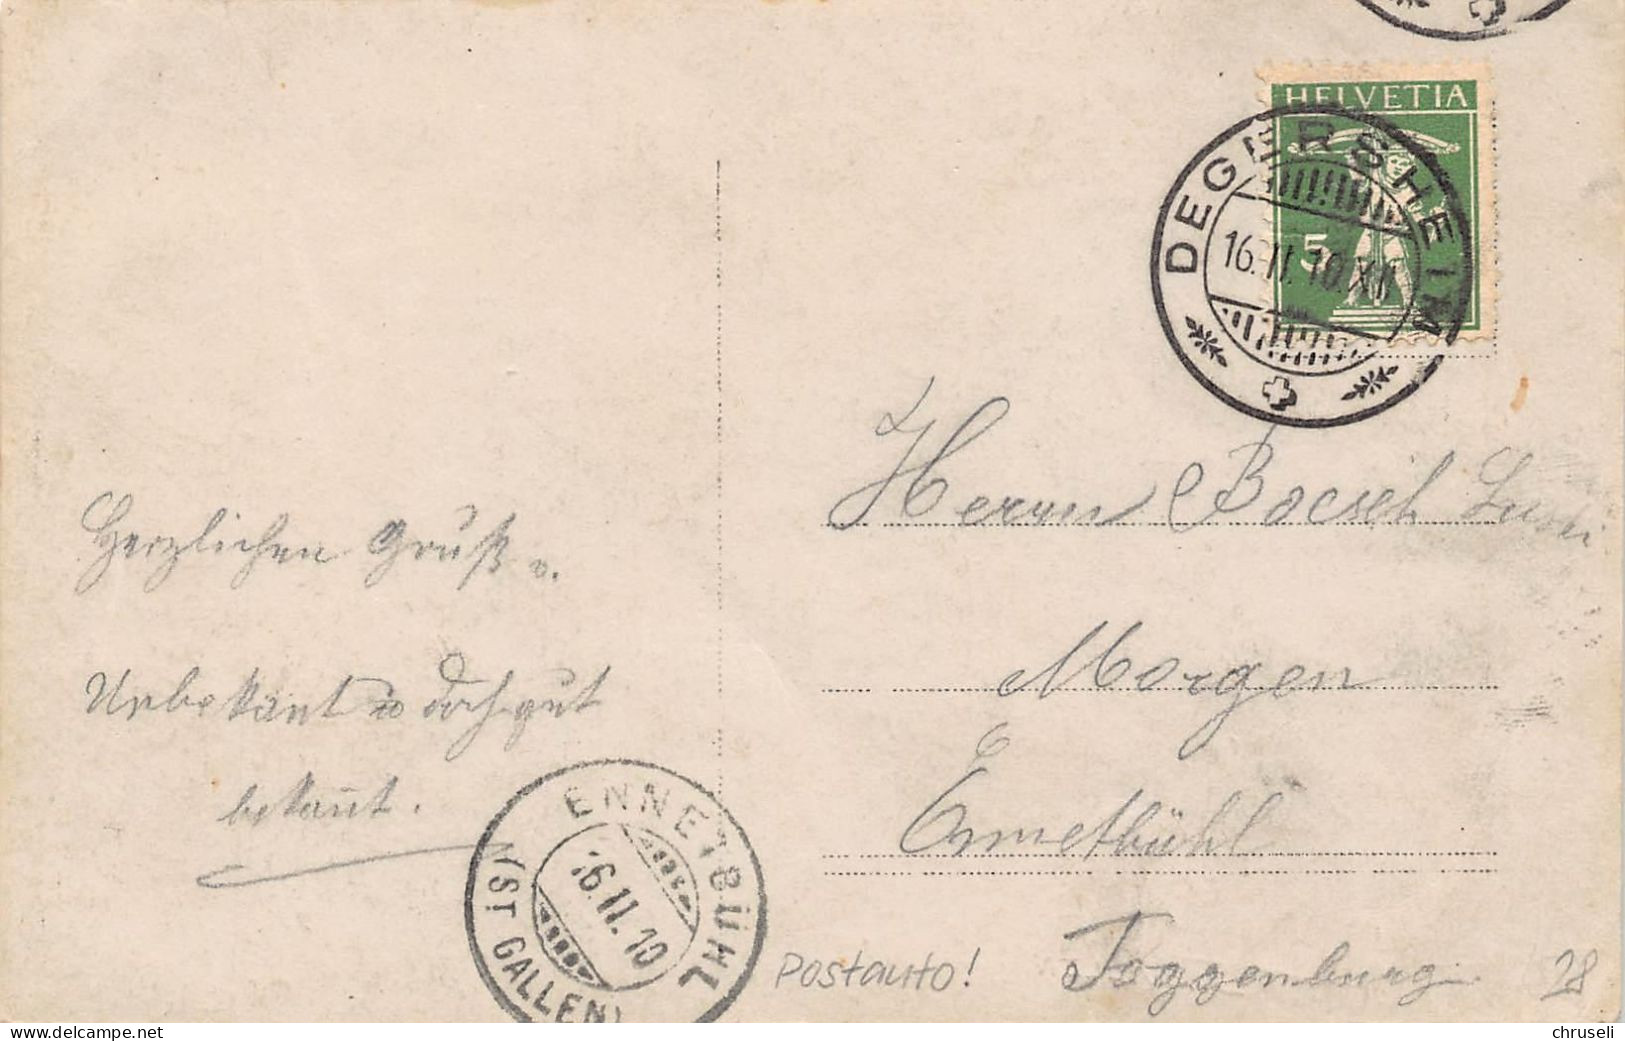 HELVETIA
5
DEGERSHEIM
16.II.10.XII
Herrn Boesch
Morgen
Ennetbühl
Toggenburg
Herzlichen Gruß u.
Unbekannt u doch gut
bekannt.
ENNETBÜHL
(ST GALLEN)
16.II.10
Postauto!
28
www.delcampe.net
chruseli